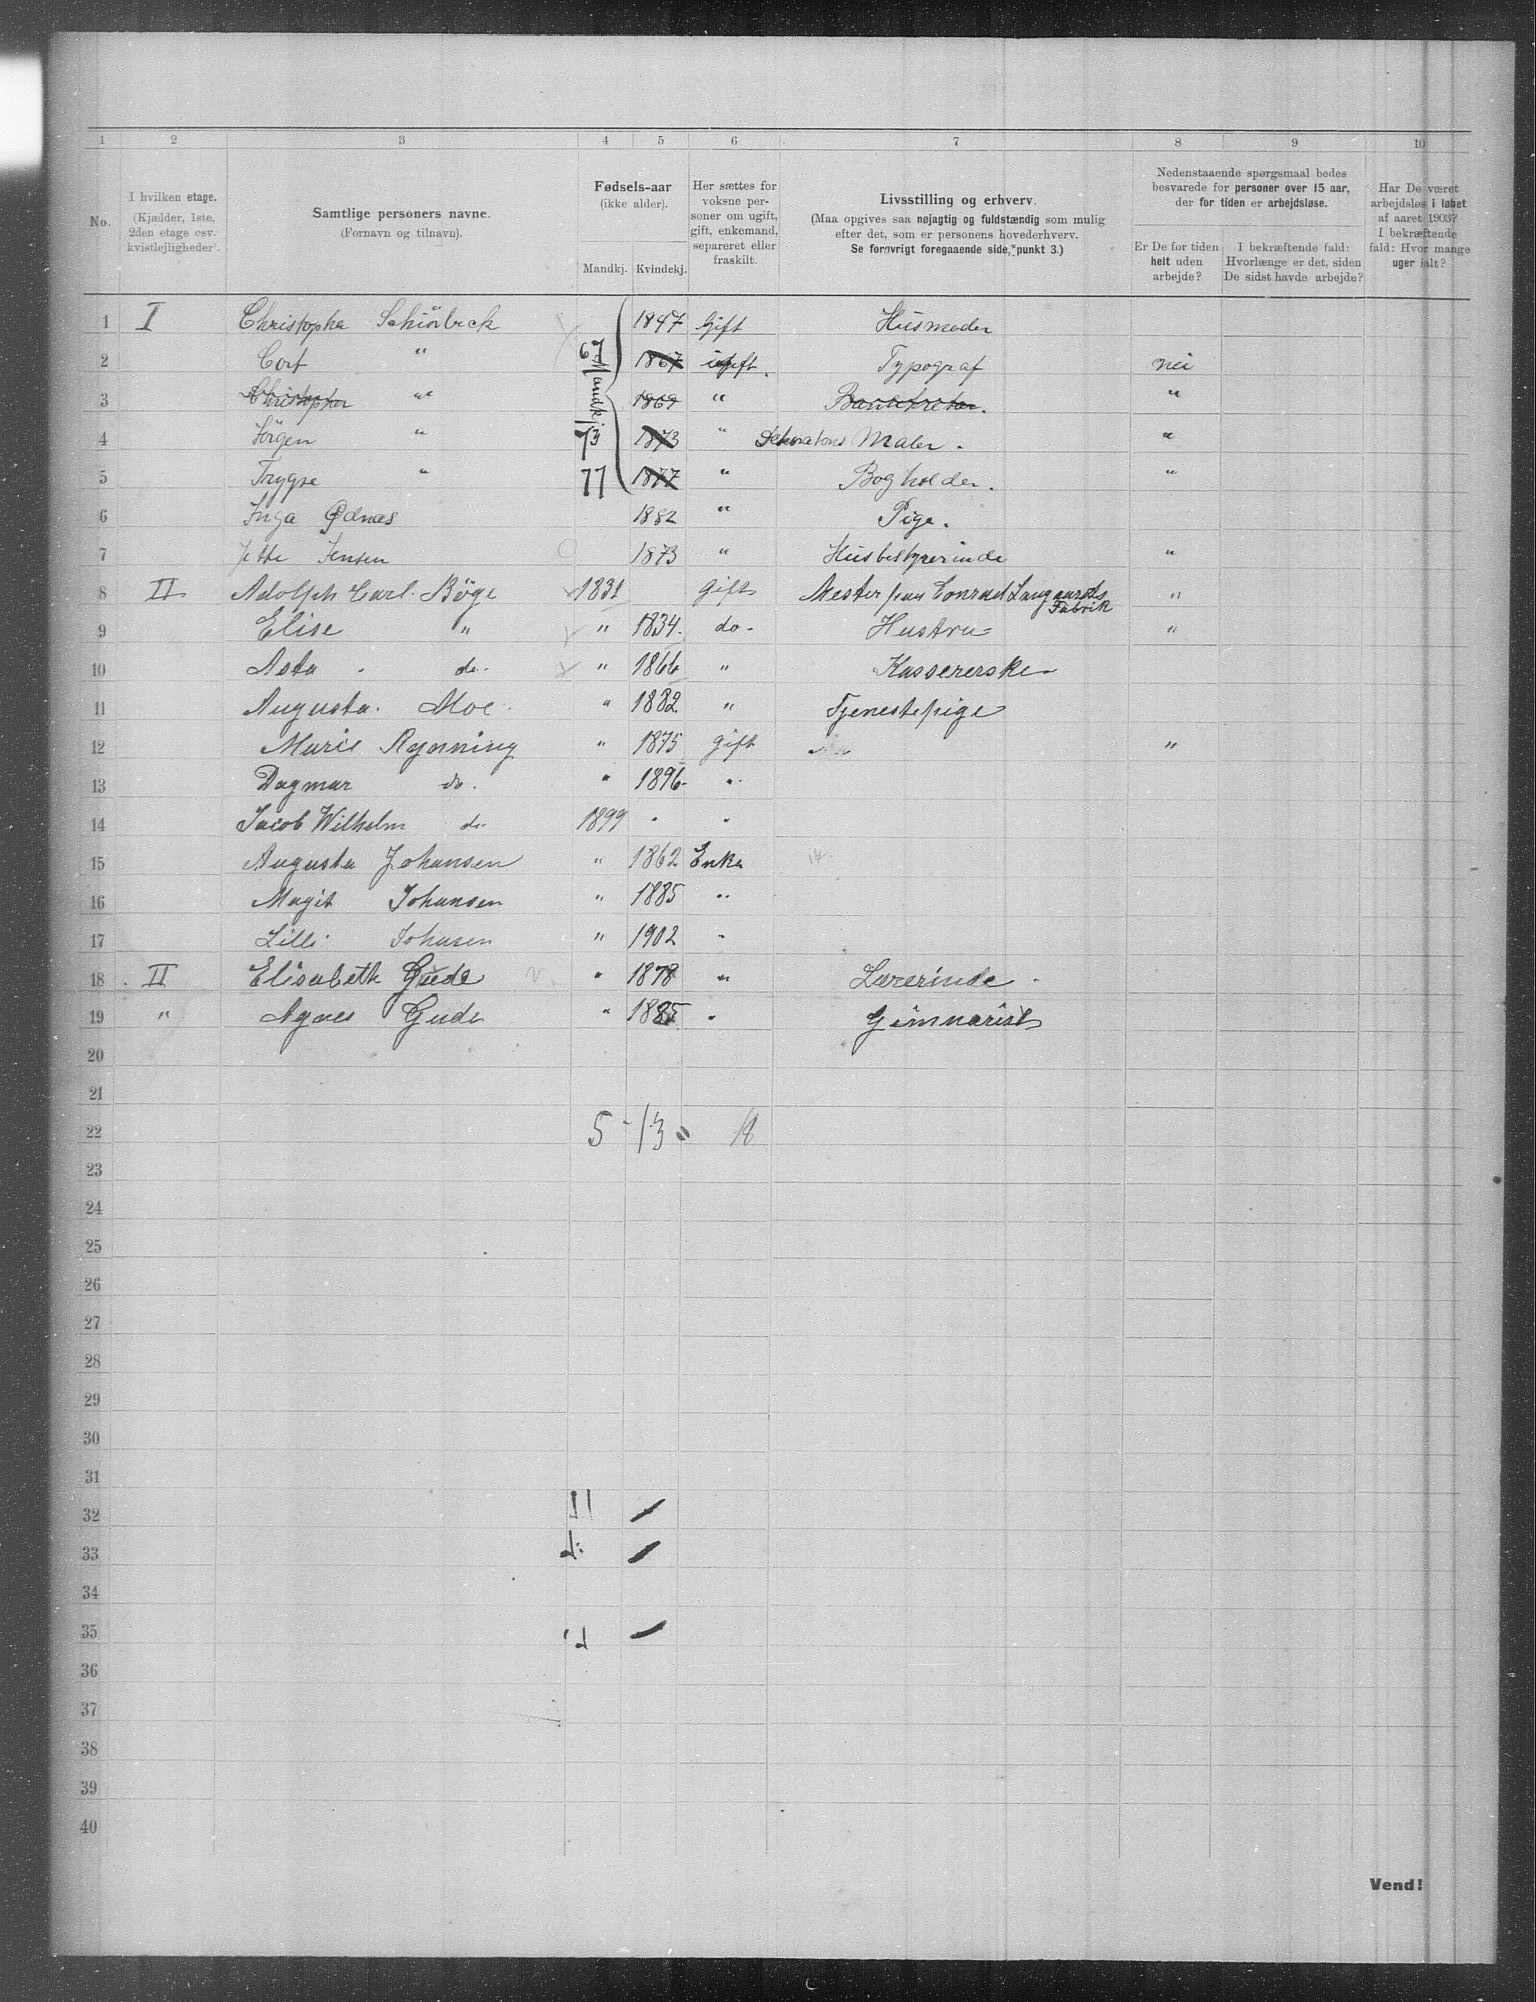 1 2 3 4 5 6 7 8 9 10
No.
I hvilken etage.
(Kjælder, 1ste,
2den etage osv.
kvistlejligheder).
Samtlige personers navne.
(Fornavn og tilnavn).
Fødsels-aar
(ikke alder).
Mandkj. Kvindekj.
Her sættes for
voksne per-
soner om ugift,
gift, enkemand,
separeret eller
fraskilt.
Livsstilling og erhverv.
(Maa opgives saa nøjagtig og fuldstændig som mulig
efter det, som er personens hovederhverv.
Se forøvrigt foregaaende side, punkt 3.)
Nedenstaaende spørgsmaal bedes
besvarede for personer over 15 aar,
der for tiden er arbejdsløse.
Er De for tiden
helt uden
arbejde?
I bekræftende fald:
Hvorlænge er det, siden
De sidst havde arbejde?
Har De været
arbejdsløs i løbet
af aaret 1903?
I bekræftende
fald: Hvor mange
uger ialt?
1 I Christopha Schönbeck 1847 Gift Husmoder
2 Cort " 67 1867 ugift. Typograf nei
Mandkj.
3 Christopher " 1869 " "
4 Jörgen " 73 1873 " Dekorations Maler. "
5 Trygve " 77 1877 " Bogholder. "
6 Inga Ødnæs 1882 " Pige.
7 Jette Jensen 1873 " Husbestyrerinde "
8 II Adolph Carl. Böge 1831 Gift Mester paa Conrad Langaards Fabrik "
9 Elise " " 1834. do. Hustru "
10 Asta do. " 1866 " Kassererske
11 Augusta. Moe. " 1882 " Tjenestepige
12 Marie Rynning " 1875 gift "
13 Dagmar do. " 1896 "
14 Jacob Wilhelm do. 1899 " "
15 Augusta Johansen " 1862 Enke
16 Magit Johansen " 1885 "
17 Lilli Johasen " 1902 "
18 II Elisabeth Gude " 1878 " Lærerinde
19 " Agnes Gude " 1885 " Gimnasist
20
21
22 5 - 13 " 18
23
24
25
26
27
28
29
30
31
32
33
34
35
36
37
38
39
40
Vend!